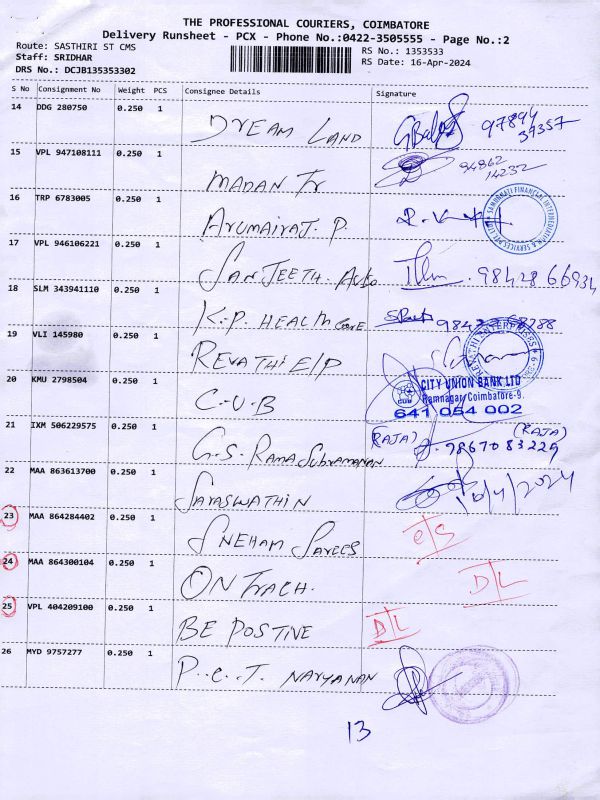 THE PROFESSIONAL COURIERS, COIMBATORE
Delivery Runsheet - PCX - Phone No.:0422-3505555 - Page No.:2
Route: SASTHIRI ST CMS RS No.: 1353533
Staff: SRIDHAR RS Date: 16-Apr-2024
DRS No.: DCJB135353302
S No Consignment No Weight PCS Consignee Details Signature
14 DDG 280750 0.250 1 DREAM LAND 97894
39357
15 VPL 947108111 0.250 1 MADAN Tr 94862
14232
16 TRP 6783005 0.250 1 Arumairaj. P.
17 VPL 946106221 0.250 1 SANJEETH. Auto 98428 66934
18 SLM 343941110 0.250 1 K.P. HEALTH Care
19 VLI 145980 0.250 1 REVATHI E/P
20 KMU 2798504 0.250 1 C-U-B CITY UNION BANK LTD
Ramnagar, Coimbatore-9.
641 054 002
21 IXM 506229575 0.250 1 G.S. Rama Subramanan (RAJA) 98670 83229 (RAJA)
22 MAA 863613700 0.250 1 SARASWATHIN 16/4/2024
23 MAA 864284402 0.250 1 SNEHAM SAREES
24 MAA 864300104 0.250 1 ON TRACH. D/L
25 VPL 404209100 0.250 1 BE POSTIVE D/L
26 MYD 9757277 0.250 1 P.C.T. NARYANAN
13